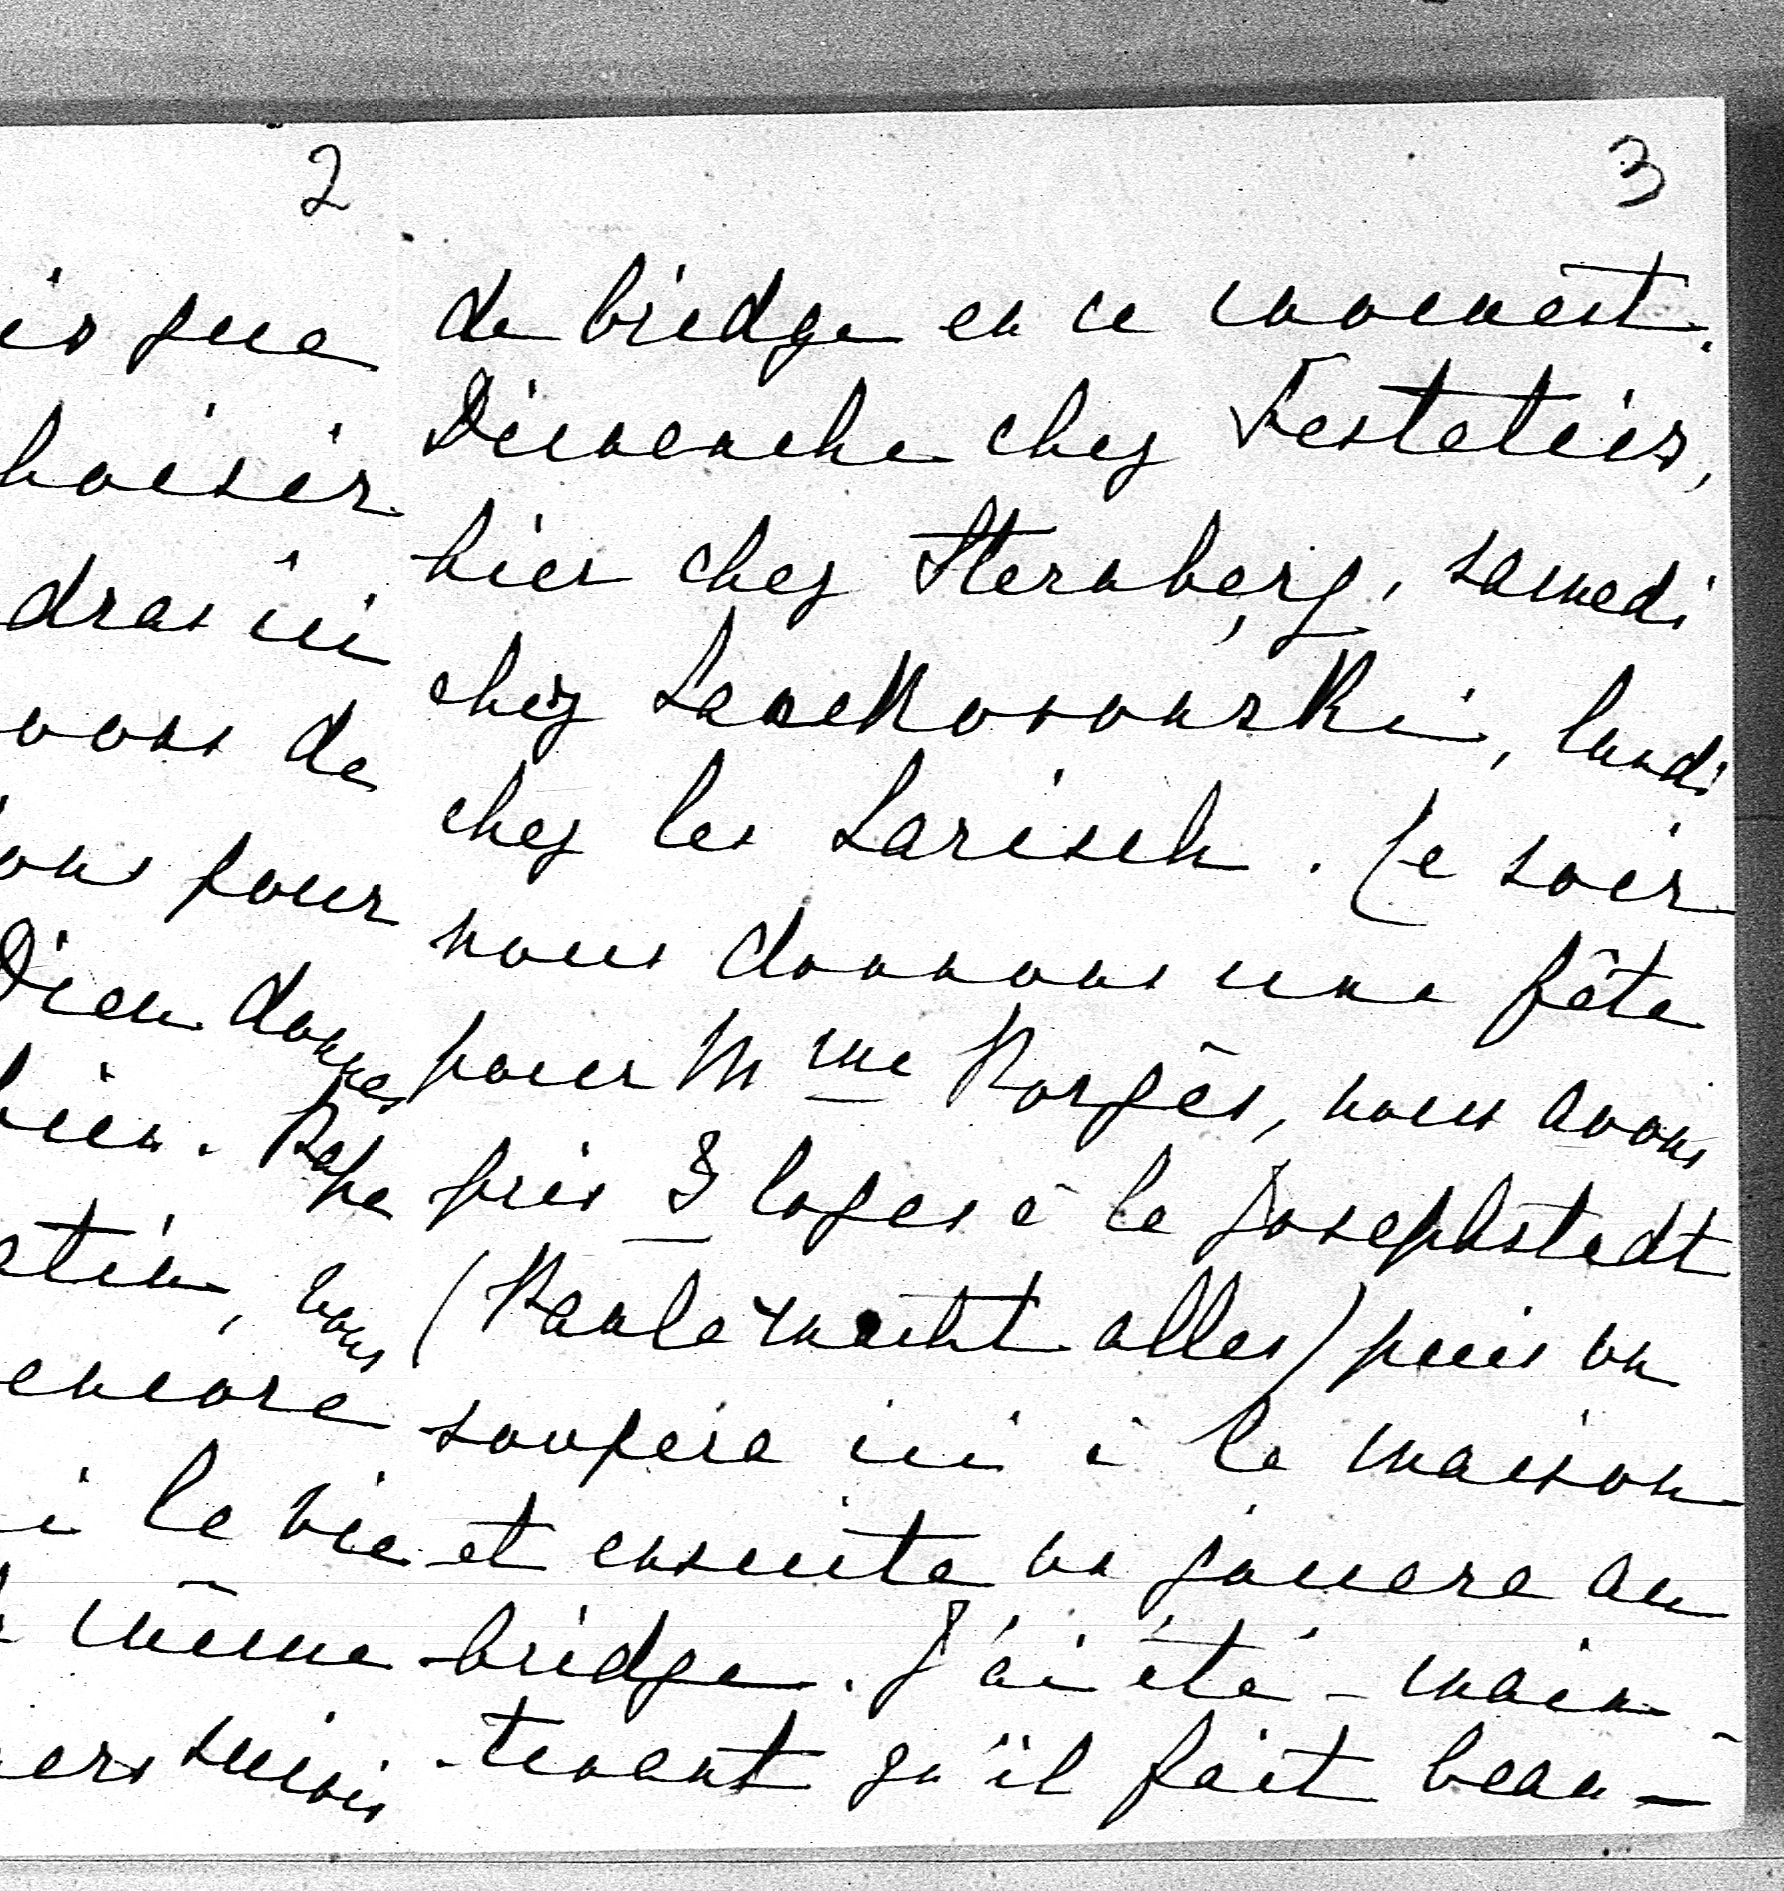 2
is que
hoisir
dras ici
vons de
ons pour
Dieu donnes
bien. Papa
atin, vous
encore
i la vie
même
ers suivis
3
de bridge en ce moment.
Dimanche chez Festetics,
hier chez Sternberg, samedi
chez Lanckoronski, lundi
chez les Larisch. Ce soir
nous donnons une fête
pour Mme Porgès, nous avons
pris 3 loges à la Josephstadt
(Paula macht alles) puis on
soupera ici à la maison
et ensuite on jouera au
bridge. J'ai été - main
-tenant qu'il fait beau -